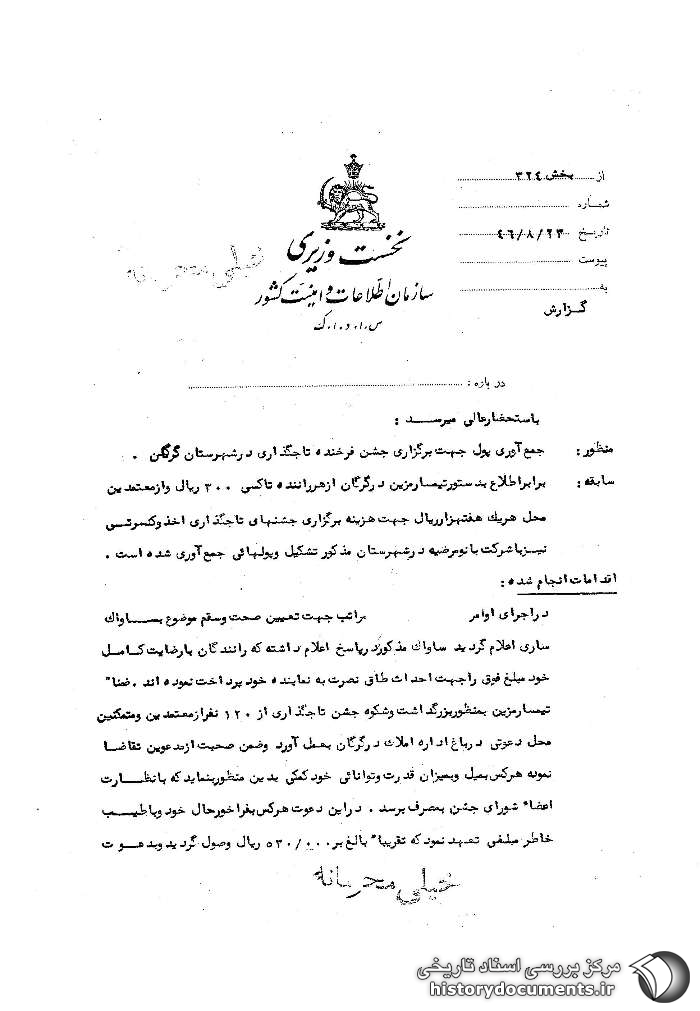 از بخش ۳۲٤
شماره
تاریخ ٤٦/۸/۲۳
پیوست
به
گزارش
نخست وزیری
سازمان اطلاعات و امنیت کشور
س.ا.و.ا.ک
خیلی محرمانه
درباره :
باستحضارعالی میرسد :
منظور : جمع آوری پول جهت برگزاری جشن فرخنده تاجگذاری درشهرستان گرگان .
سابقه : برابراطلاع بدستورتیمسارمزین درگرگان ازهرراننده تاکسی ۳۰۰ ریال وازمعتمدین
محل هریک هفتهزارریال جهت هزینه برگزاری جشنهای تاجگذاری اخذ وکنسرتی
نیزباشرکت بانومرضیه درشهرستان مذکور تشکیل وپولهائی جمع آوری شده است .
اقدامات انجام شده :
دراجرای اوامر مراتب جهت تعیین صحت وسقم موضوع بساواک
ساری اعلام گردید ساواک مذکوردرپاسخ اعلام داشته که رانندگان بارضایت کامل
خود مبلغ فوق راجهت احداث طاق نصرت به نماینده خود پرداخت نموده اند . ضمنا"
تیمسارمزین بمنظوربزرگداشت وشکوه جشن تاجگذاری از ۱۲۰ نفرازمعتمدین ومتمکنین
محل دعوتی درباغ اداره املاک درگرگان بعمل آورد وضمن صحبت ازمدعوین تقاضا
نموده هرکس بمیل وبمیزان قدرت وتوانائی خود کمکی بدین منظوربنماید که بانظارت
اعضاء شورای جشن بمصرف برسد . دراین دعوت هرکس بفراخورحال خود وباطیب
خاطر مبلغی تعهد نمود که تقریبا" بالغ بر ۵۳۰/۰۰۰ ریال وصول گردید وبدعوت
خیلی محرمانه
مرکز بررسی اسناد تاریخی
historydocuments.ir